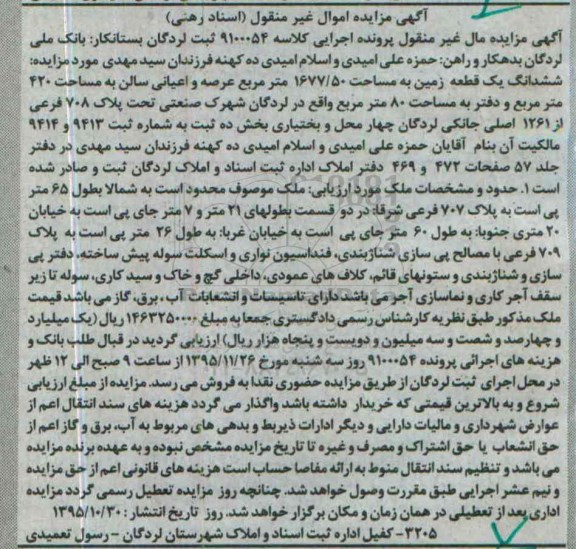 آگهی مزایده اموال غیر منقول (اسناد رهنی)
آگهی مزایده مال غیر منقول پرونده اجرایی کلاسه ۹۱۰۰۰۵۴ ثبت لردگان بستانکار: بانک ملی
لردگان بدهکار و راهن: حمزه علی امیدی و اسلام امیدی ده کهنه فرزندان سید مهدی مورد مزایده:
ششدانگ یک قطعه زمین به مساحت ۱۶۷۷/۵۰ متر مربع عرصه و اعیانی سالن به مساحت ۴۲۰
متر مربع و دفتر به مساحت ۸۰ متر مربع واقع در لردگان شهرک صنعتی تحت پلاک ۷۰۸ فرعی
از ۱۲۶۱ اصلی جانکی لردگان چهار محل و بختیاری بخش ده ثبت به شماره ثبت ۹۴۱۳ و ۹۴۱۴
مالکیت آن بنام آقایان حمزه علی امیدی و اسلام امیدی ده کهنه فرزندان سید مهدی در دفتر
جلد ۵۷ صفحات ۴۷۲ و ۴۶۹ دفتر املاک اداره ثبت اسناد و املاک لردگان ثبت و صادر شده
است ۱. حدود و مشخصات ملک مورد ارزیابی: ملک موصوف محدود است به شمالا بطول ۶۵ متر
پی است به پلاک ۷۰۷ فرعی شرقا: در دو قسمت بطولهای ۲۱ متر و ۷ متر جای پی است به خیابان
۲۰ متری جنوبا: به طول ۶۰ متر جای پی است به خیابان غربا: به طول ۲۶ متر پی است به پلاک
۷۰۹ فرعی با مصالح پی سازی شناژبندی، فنداسیون نواری و اسکلت سوله پیش ساخته، دفتر پی
سازی و شناژبندی و ستونهای قائم، کلاف های عمودی، داخلی گچ و خاک و سید کاری، سوله تا زیر
سقف آجر کاری و نماسازی آجر می باشد دارای تاسیسات و انشعابات آب، برق، گاز می باشد قیمت
ملک مذکور طبق نظریه کارشناس رسمی دادگستری جمعا به مبلغ ۱۴۶۳۲۵۰۰۰۰ ریال (یک میلیارد
و چهارصد و شصت و سه میلیون و دویست و پنجاه هزار ریال) ارزیابی گردید در قبال طلب بانک و
هزینه های اجرائی پرونده ۹۱۰۰۰۵۴ روز سه شنبه مورخ ۱۳۹۵/۱۱/۲۶ از ساعت ۹ صبح الی ۱۲ ظهر
در محل اجرای ثبت لردگان از طریق مزایده حضوری نقدا به فروش می رسد. مزایده از مبلغ ارزیابی
شروع و به بالاترین قیمتی که خریدار داشته باشد واگذار می گردد هزینه های سند انتقال اعم از
عوارض شهرداری و مالیات دارایی و دیگر ادارات ذیربط و بدهی های مربوط به آب، برق و گاز اعم از
حق انشعاب یا حق اشتراک و مصرف و غیره تا تاریخ مزایده مشخص نبوده و به عهده برنده مزایده
می باشد و تنظیم سند انتقال منوط به ارائه مفاصا حساب است هزینه های قانونی اعم از حق مزایده
و نیم عشر اجرایی طبق مقررت وصول خواهد شد. چنانچه روز مزایده تعطیل رسمی گردد مزایده
اداری بعد از تعطیلی در همان زمان و مکان برگزار خواهد شد. روز تاریخ انتشار: ۱۳۹۵/۱۰/۳۰
۳۲۰۵- کفیل اداره ثبت اسناد و املاک شهرستان لردگان - رسول تعمیدی